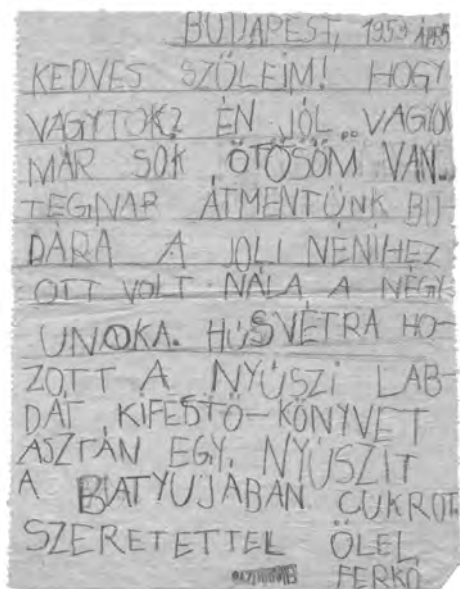 BUDAPEST, 1959 ÁPR 5
KEDVES SZÜLEIM! HOGY
VAGYTOK? ÉN JÓL VAGYOK
MÁR SOK ÖTÖSÖM VAN.
TEGNAP ÁTMENTÜNK BU-
DÁRA A JOLI NÉNIHEZ
OTT VOLT NÁLA A NÉGY
UNOKA. HÚSVÉTRA HO-
ZOTT A NYÚSZI LAB-
DÁT KIFESTŐ-KÖNYVET
ASZTÁN EGY NYÚSZIT
A BATYUJÁBAN CUKROT.
SZERETETTEL ÖLEL
FERKÓ